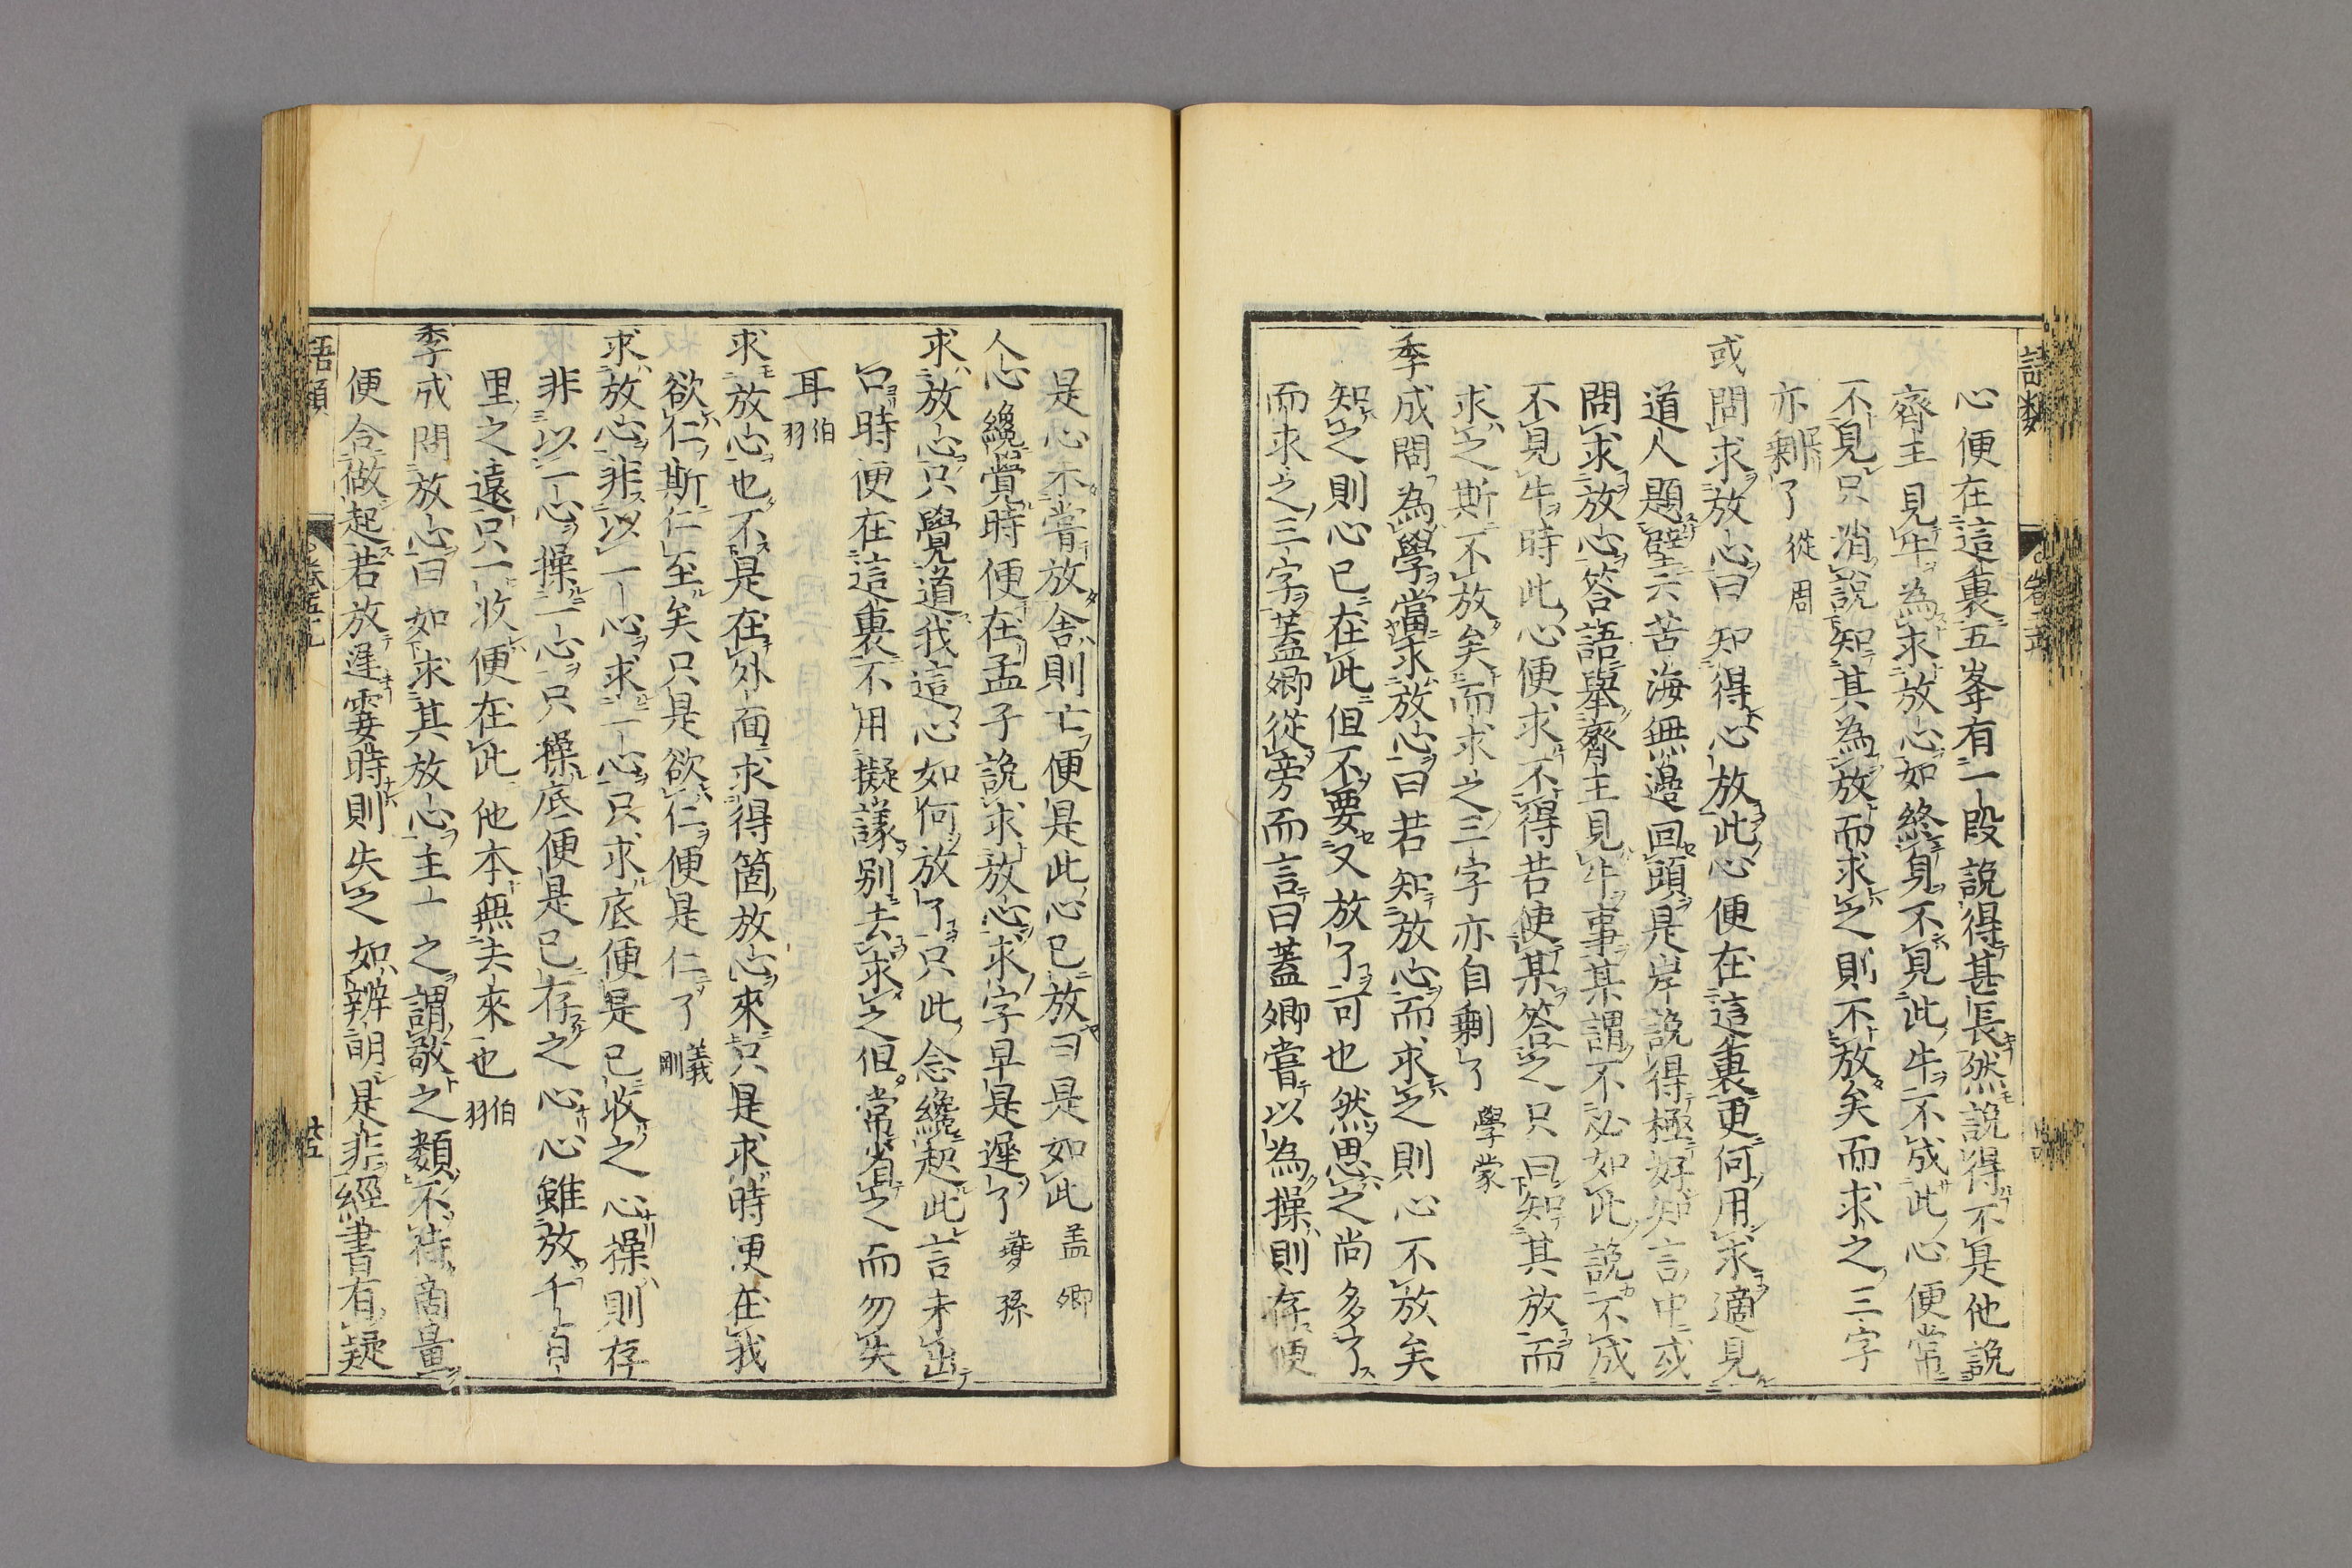 語類
卷五十九
心便在這裏五峯有一段說得甚長然說得不是他說
齊王見牛為求放心如終身不見此牛不成此心便常
不見只消說知其為放而求之則不放矣而求之三字
亦剩了從周
或問求放心曰知得心放此心便在這裏更何用求適見
道人題壁云苦海無邊回頭是岸說得極好知言中或
問求放心答語舉齊王見牛事某謂不必如此說不成
不見牛時此心便求不得若使某答之只曰知其放而
求之斯不放矣而求之三字亦自剩了學蒙
季成問為學當求放心曰若知放心而求之則心不放矣
知之則心已在此但不要又放了可也然思之尚多了
而求之三字蓋卿從旁而言曰蓋卿嘗以為操則存便
是心未嘗放舍則亡便是此心已放曰是如此蓋卿
人心纔覺時便在孟子說求放心求字早是遲了夔孫
求放心只覺道我這心如何放了只此念纔起此言未出
口時便在這裏不用擬議別去求之但常省之而勿失
耳伯羽
求放心也不是在外面求得箇放心來只是求時便在我
欲仁斯仁至矣只是欲仁便是仁了義剛
求放心非以一心求一心只求底便是已收之心操則存
非以一心操一心只操底便是已存之心心雖放千百
里之遠只一收便在此他本無去來也伯羽
季成問放心曰如求其放心主一之謂敬之類不待商量
便合做起若放遲霎時則失之如辨明是非經書有疑
語類
卷五十九